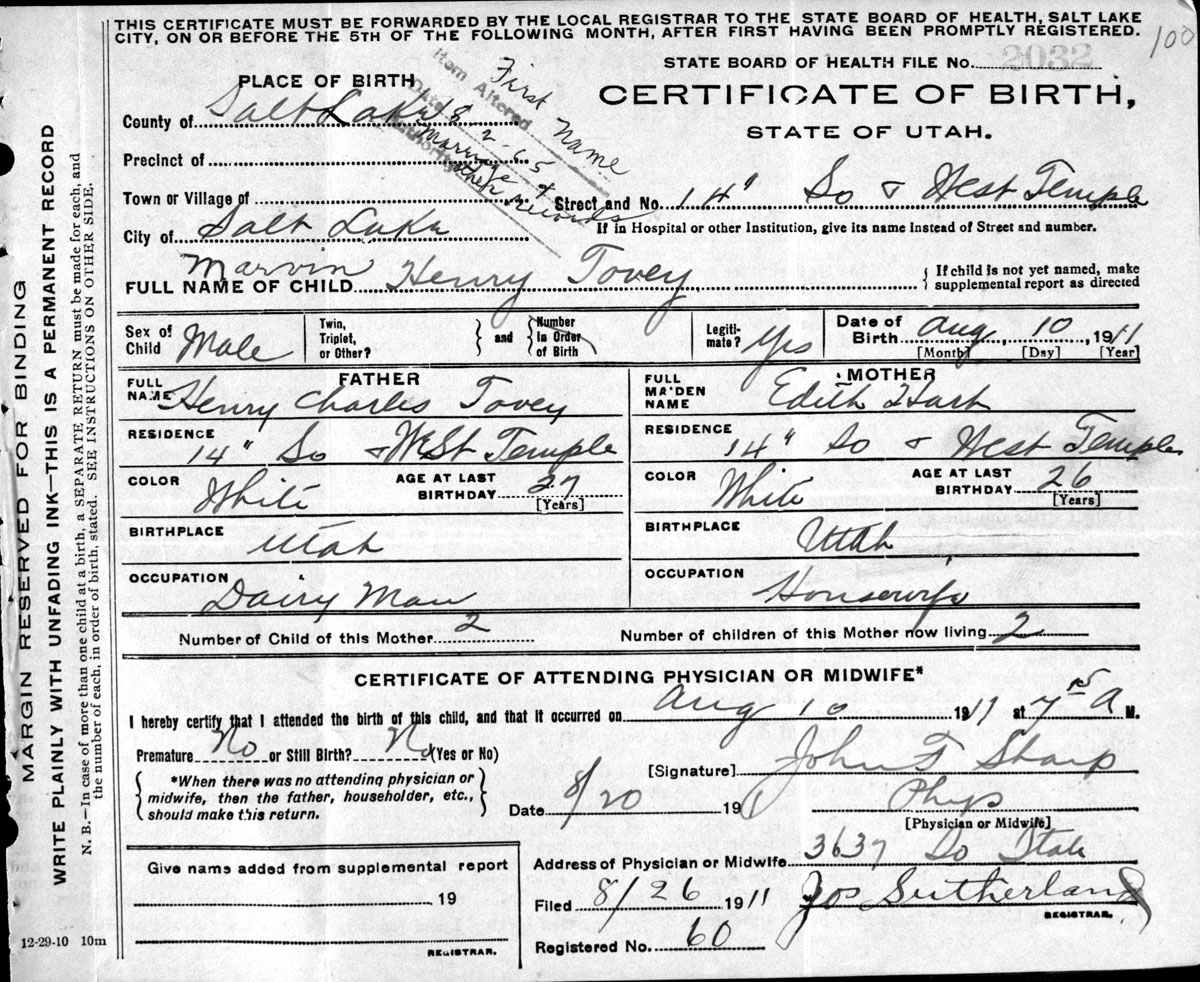 THIS CERTIFICATE MUST BE FORWARDED BY THE LOCAL REGISTRAR TO THE STATE BOARD OF HEALTH, SALT LAKE
CITY, ON OR BEFORE THE 5TH OF THE FOLLOWING MONTH, AFTER FIRST HAVING BEEN PROMPTLY REGISTERED.
100
STATE BOARD OF HEALTH FILE No. 2032
PLACE OF BIRTH
CERTIFICATE OF BIRTH,
STATE OF UTAH.
Item Altered First Name
Date 8-2-65
Authority Marriage + other records
County of Salt Lake
Precinct of
Town or Village of
Street and No. 14" So & West Temple
City of Salt Lake
If in Hospital or other Institution, give its name instead of Street and number.
Marvin
FULL NAME OF CHILD Henry Tovey
{ If child is not yet named, make
supplemental report as directed
Sex of Child Male
Twin, Triplet, or Other?
and
Number in Order of Birth
Legiti-mate? Yes
Date of Birth Aug 10, 1911
[Month] [Day] [Year]
FATHER
FULL NAME Henry Charles Tovey
MOTHER
FULL MAIDEN NAME Edith Hart
RESIDENCE 14" So & West Temple
RESIDENCE 14" So & West Temple
COLOR White
AGE AT LAST BIRTHDAY 27
[Years]
COLOR White
AGE AT LAST BIRTHDAY 26
[Years]
BIRTHPLACE Utah
BIRTHPLACE Utah
OCCUPATION Dairy Man
OCCUPATION Housewife
Number of Child of this Mother 2
Number of children of this Mother now living 2
CERTIFICATE OF ATTENDING PHYSICIAN OR MIDWIFE*
I hereby certify that I attended the birth of this child, and that it occurred on Aug 10 1911 at 7 15 A M.
Premature No or Still Birth? No (Yes or No)
*When there was no attending physician or
midwife, then the father, householder, etc.,
should make this return.
[Signature] John F Sharp
Date 8/20 1911
Phys
[Physician or Midwife]
Give name added from supplemental report
19
REGISTRAR.
Address of Physician or Midwife 3637 So State
Filed 8/26 1911 Jos Sutherland
REGISTRAR.
Registered No. 60
12-29-10 10m
MARGIN RESERVED FOR BINDING
WRITE PLAINLY WITH UNFADING INK—THIS IS A PERMANENT RECORD
N. B.—In case of more than one child at a birth, a SEPARATE RETURN must be made for each, and
the number of each, in order of birth, stated. SEE INSTRUCTIONS ON OTHER SIDE.